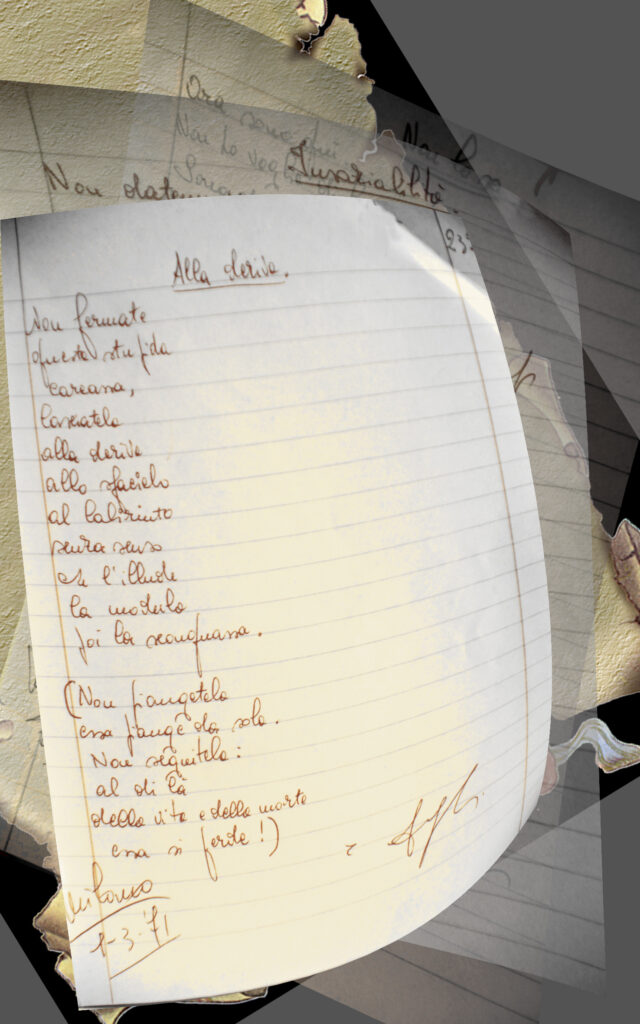 Ora sono qui
Non ho
Insaziabilità.
Non
Alla deriva.
Non fermate
questa stupida
carcassa,
lasciatela
alla deriva
allo sfacelo
al labirinto
senza senso
che l'illude
la modula
poi la sconquassa.
(Non piangetela
essa piange da sola.
Non seguitela:
al di là
della vita e della morte
essa si perde!)
Milano
1-3-'71